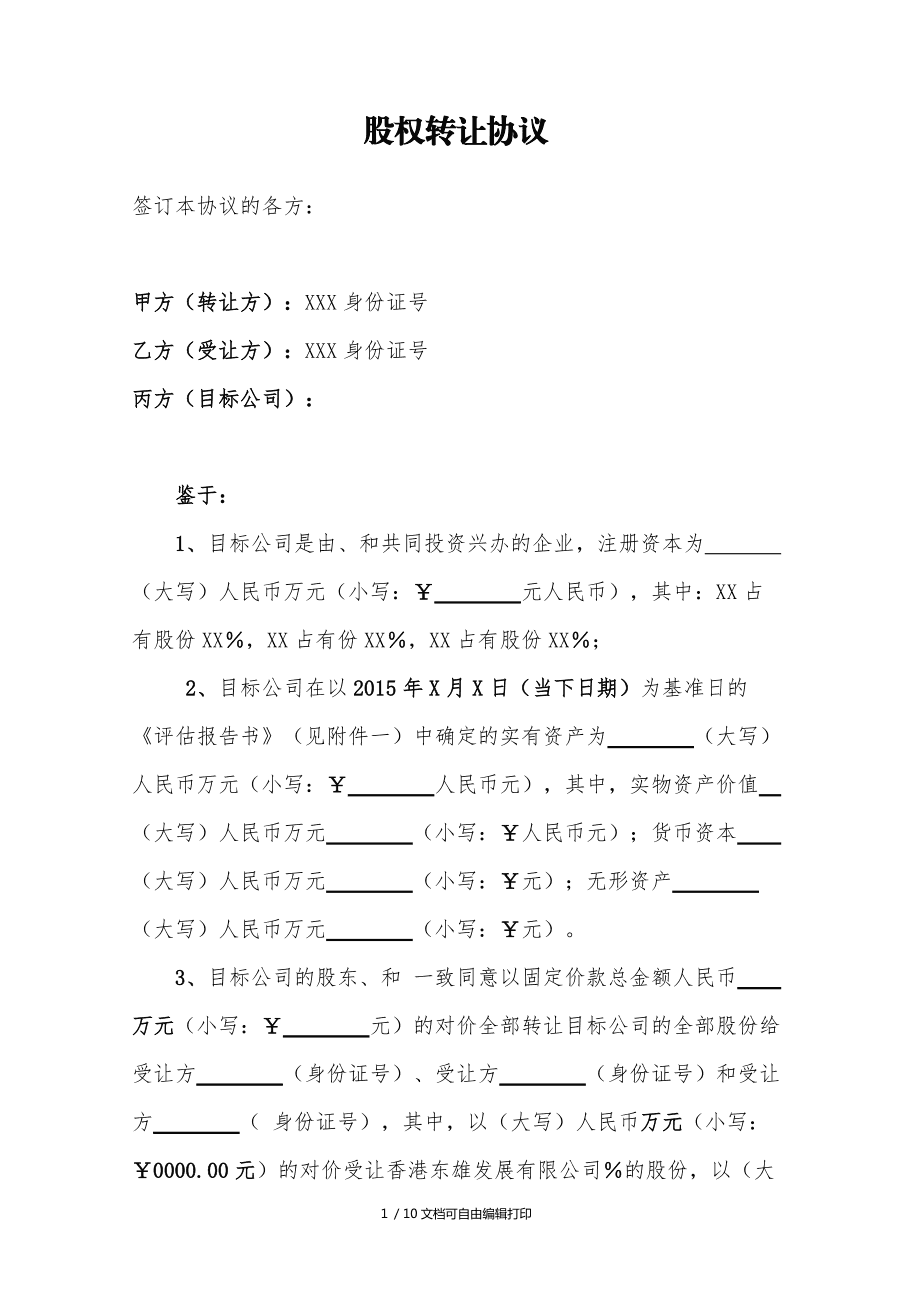 股权转让协议
签订本协议的各方：
甲方（转让方）：XXX 身份证号
乙方（受让方）：XXX 身份证号
丙方（目标公司）：
鉴于：
1、目标公司是由、和共同投资兴办的企业，注册资本为_______
（大写）人民币万元（小写：￥________元人民币），其中：XX 占
有股份 XX％，XX 占有份 XX％，XX 占有股份 XX％；
2、目标公司在以 2015 年 X 月 X 日（当下日期）为基准日的
《评估报告书》（见附件一）中确定的实有资产为________（大写）
人民币万元（小写：￥________人民币元），其中，实物资产价值__
（大写）人民币万元________（小写：￥人民币元）；货币资本____
（大写）人民币万元________（小写：￥元）；无形资产________
（大写）人民币万元________（小写：￥元）。
3、目标公司的股东、和 一致同意以固定价款总金额人民币____
万元（小写：￥________元）的对价全部转让目标公司的全部股份给
受让方________（身份证号）、受让方________（身份证号）和受让
方________（ 身份证号），其中，以（大写）人民币万元（小写：
￥0000.00 元）的对价受让香港东雄发展有限公司％的股份，以（大
1 / 10 文档可自由编辑打印